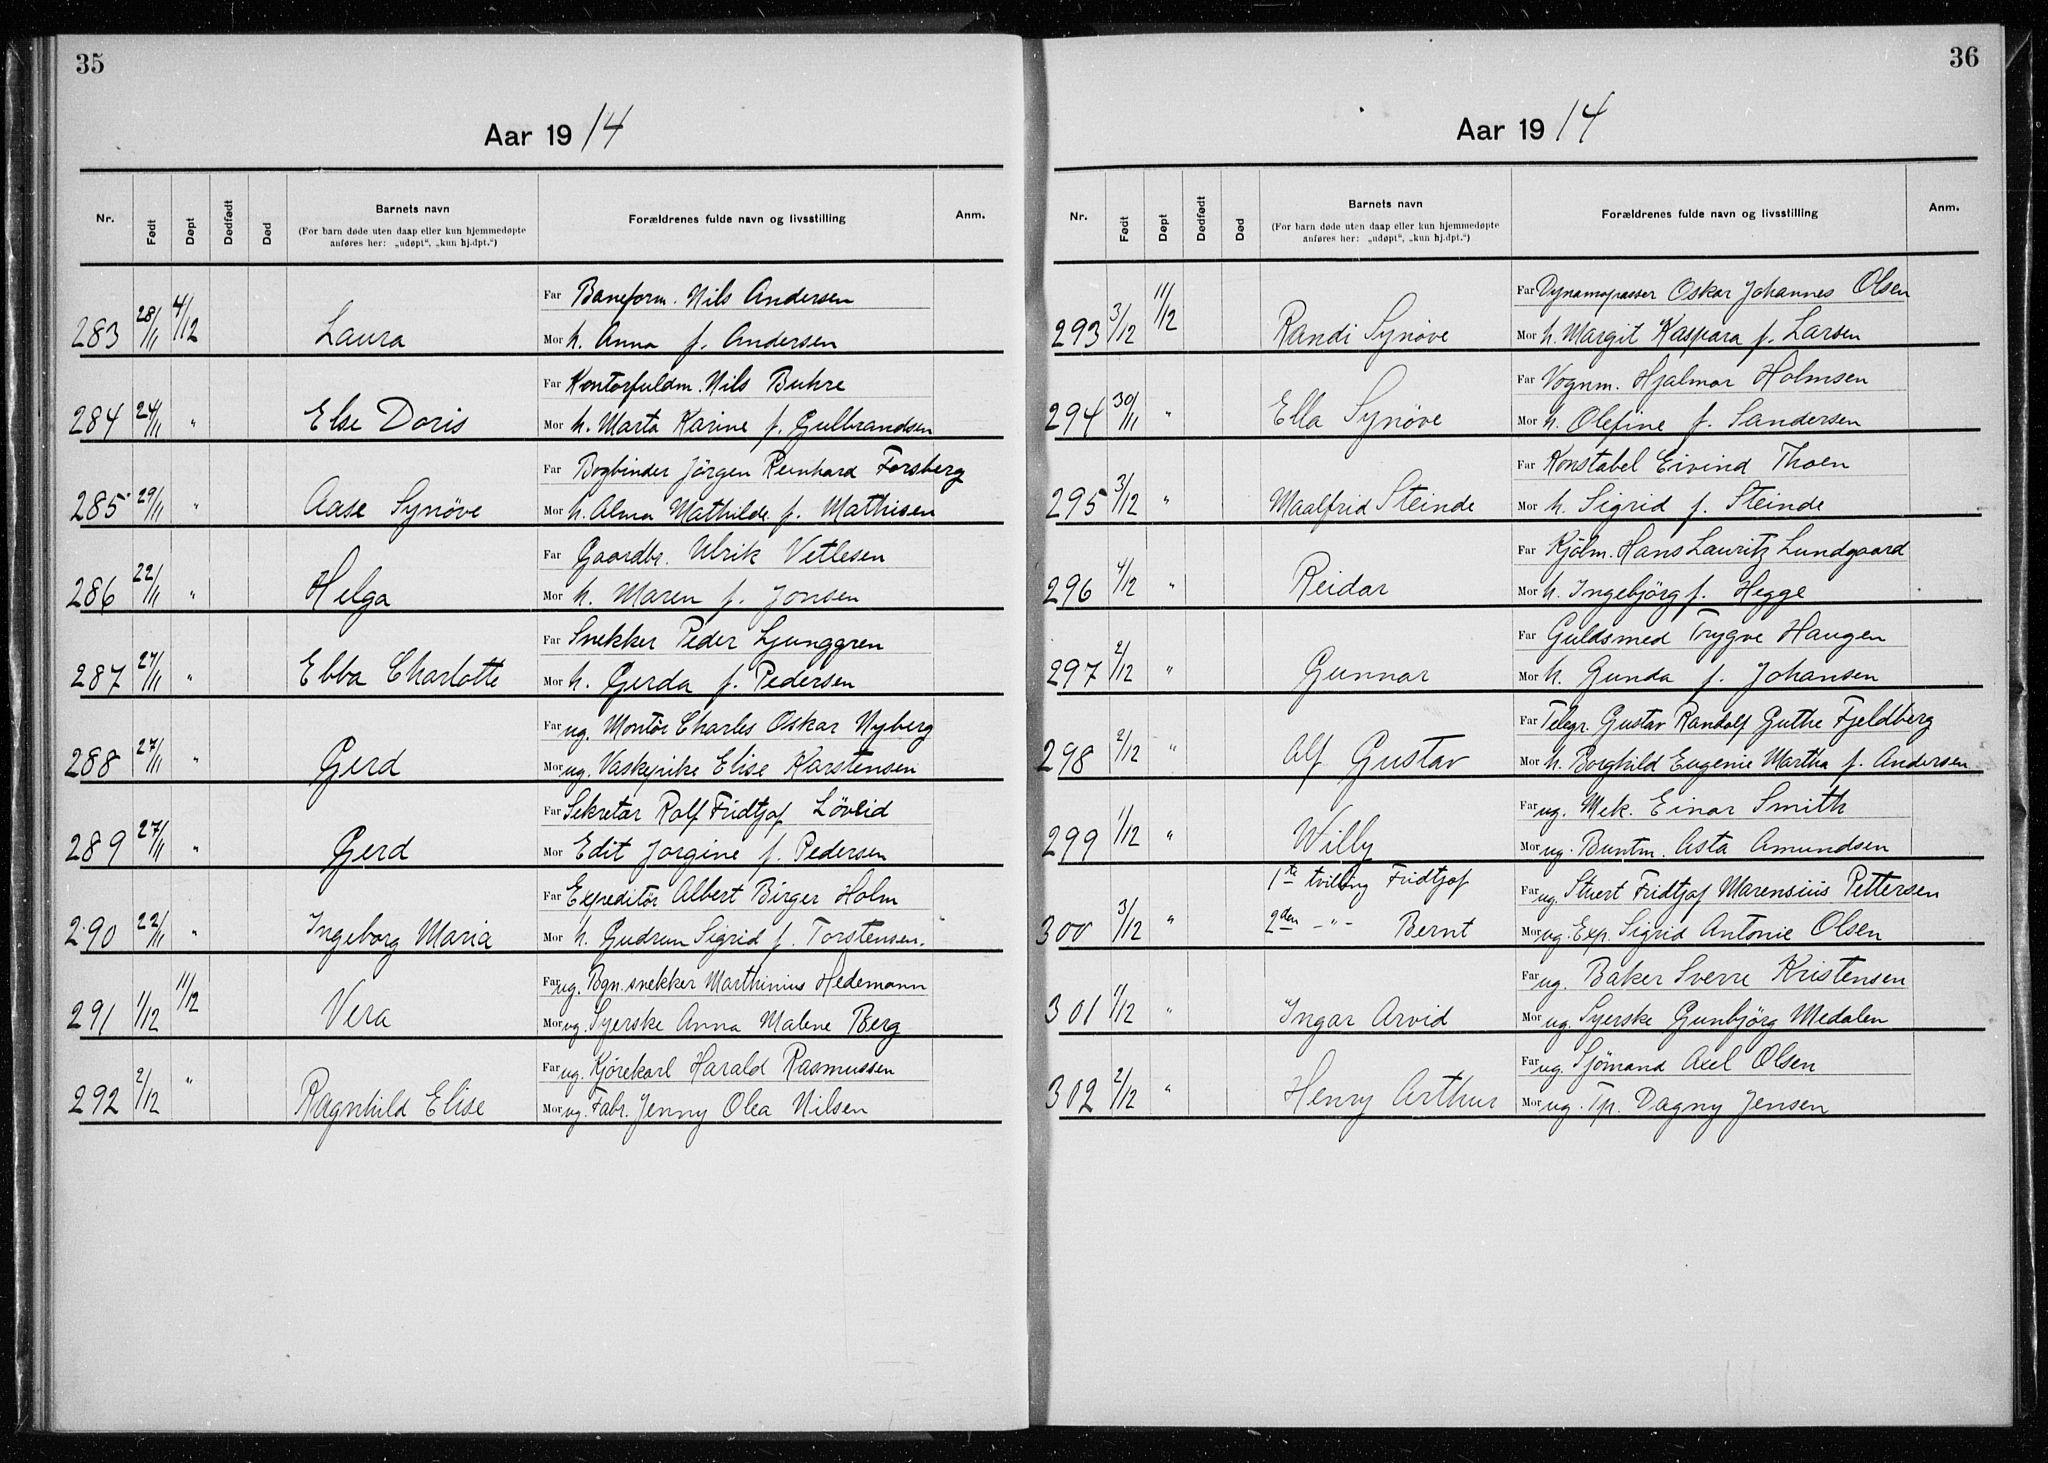 35
Aar 1914
Nr. Født Døpt Dødfødt Død Barnets navn Forældrenes fulde navn og livsstilling Anm.
(For barn døde uten daap eller kun hjemmedøpte
anføres her: „udøpt“, „kun hj.dpt.“)
Far Baneform. Nils Andersen
283 28/11 4/12 Laura Mor h. Anna f. Andersen
Far Kontorfuldm. Nils Buhre
284 24/11 " Else Doris Mor h. Marta Karine f. Gulbrandsen
Far Bogbinder Jörgen Reinhard Forsberg
285 29/11 " Aase Synøve Mor h. Alma Mathilde f. Mathisen
Far Gaardbr. Ulrik Vetlesen
286 22/11 " Helga Mor h. Maren f. Jonsen
Far Snekker Peder Ljunggren
287 27/11 " Ebba Charlotte Mor h. Gerda f. Pedersen
Far ug. Montör Charles Oskar Nyberg
288 27/11 " Gerd Mor ug. Vaskepike Elise Karstensen
Far Sekretær Rolf Fridtjof Lövlid
289 27/11 " Gerd Mor Edit Jorgine f. Pedersen
Far Expeditör Albert Birger Holm
290 22/11 " Ingeborg Maria Mor h. Gudrun Sigrid f. Torstensen.
Far ug. Bgn. snekker Marthinius Hedemann
291 1/12 11/12 Vera Mor ug. Syerske Anna Malene Berg
Far ug. Kjörekarl Harald Rasmussen
292 2/12 " Ragnhild Elise Mor ug. Fabr. Jenny Olea Nilsen
36
Aar 1914
Nr. Født Døpt Dødfødt Død Barnets navn Forældrenes fulde navn og livsstilling Anm.
(For barn døde uten daap eller kun hjemmedøpte
anføres her: „udøpt“, „kun hj.dpt.“)
Far Dynamopasser Oskar Johannes Olsen
293 3/12 11/12 Randi Synøve Mor h. Margit Kaspara f. Larsen
Far Vognm. Hjalmar Holmsen
294 30/11 " Ella Synøve Mor h. Olefine f. Sandersen
Far Konstabel Eivind Thoen
295 3/12 " Maalfrid Steinde Mor h. Sigrid f. Steinde
Far Kjölm. Hans Lauritz Lundgaard
296 4/12 " Reidar Mor h. Ingebjörg f. Hegge
Far Guldsmed Trygve Haugen
297 2/12 " Gunnar Mor h. Gunda f. Johansen
Far Telegr. Gustav Randolf Guthe Fjeldberg
298 2/12 " Alf Gustav Mor h. Borghild Eugenie Martha f. Andersen
Far ug. Mek. Einar Smith
299 1/12 " Willy Mor ug. Buntm. Asta Amundsen
1ste tvilling Fridtjof Far ug. Stuert Fridtjof Marensius Pettersen
300 3/12 " 2den -"- Bernt Mor ug. Exp. Sigrid Antonie Olsen
Far ug. Baker Sverre Kristensen
301 1/12 " Ingar Arvid Mor ug. Syerske Gunbjörg Medalen
Far ug. Sjömand Axel Olsen
302 2/12 " Henry Arthur Mor ug. Tp. Dagny Jensen